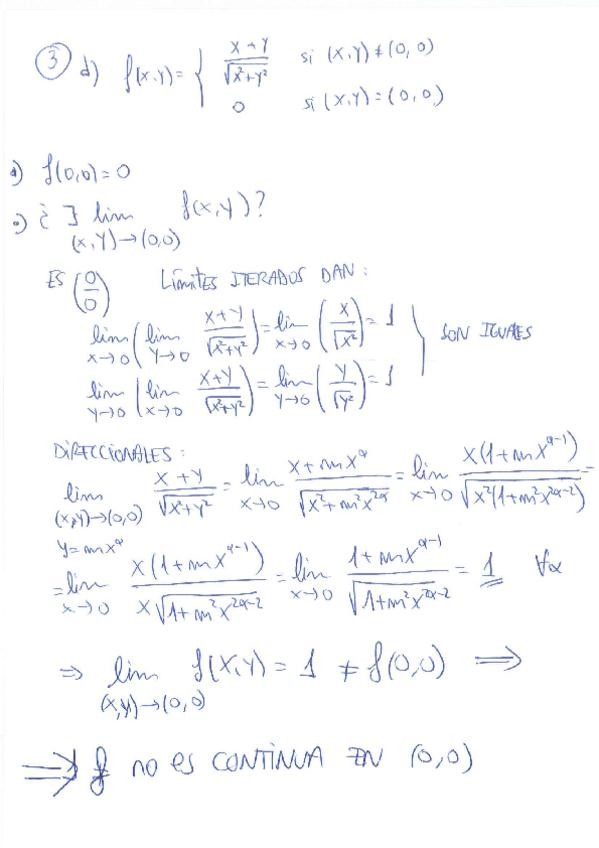 ③ d) f(x,y) = { x+y / √(x²+y²) si (x,y) ≠ (0,0)
0 si (x,y) = (0,0)
•) f(0,0) = 0
•) ¿∃ lim (x,y)→(0,0) f(x,y)?
ES (0/0) LÍMITES ITERADOS DAN:
lim x→0 ( lim y→0 x+y / √(x²+y²) ) = lim x→0 ( x / √x² ) = 1
lim y→0 ( lim x→0 x+y / √(x²+y²) ) = lim y→0 ( y / √y² ) = 1 } SON IGUALES
DIRECCIONALES:
lim (x,y)→(0,0) y=mx^α x+y / √(x²+y²) = lim x→0 x+mx^α / √(x²+m²x^(2α)) = lim x→0 x(1+mx^(α-1)) / √(x²(1+m²x^(2α-2))) =
= lim x→0 x(1+mx^(α-1)) / x√(1+m²x^(2α-2)) = lim x→0 1+mx^(α-1) / √(1+m²x^(2α-2)) = 1 ∀α
⇒ lim (x,y)→(0,0) f(x,y) = 1 ≠ f(0,0) ⇒
⇒ f no es CONTINUA EN (0,0)